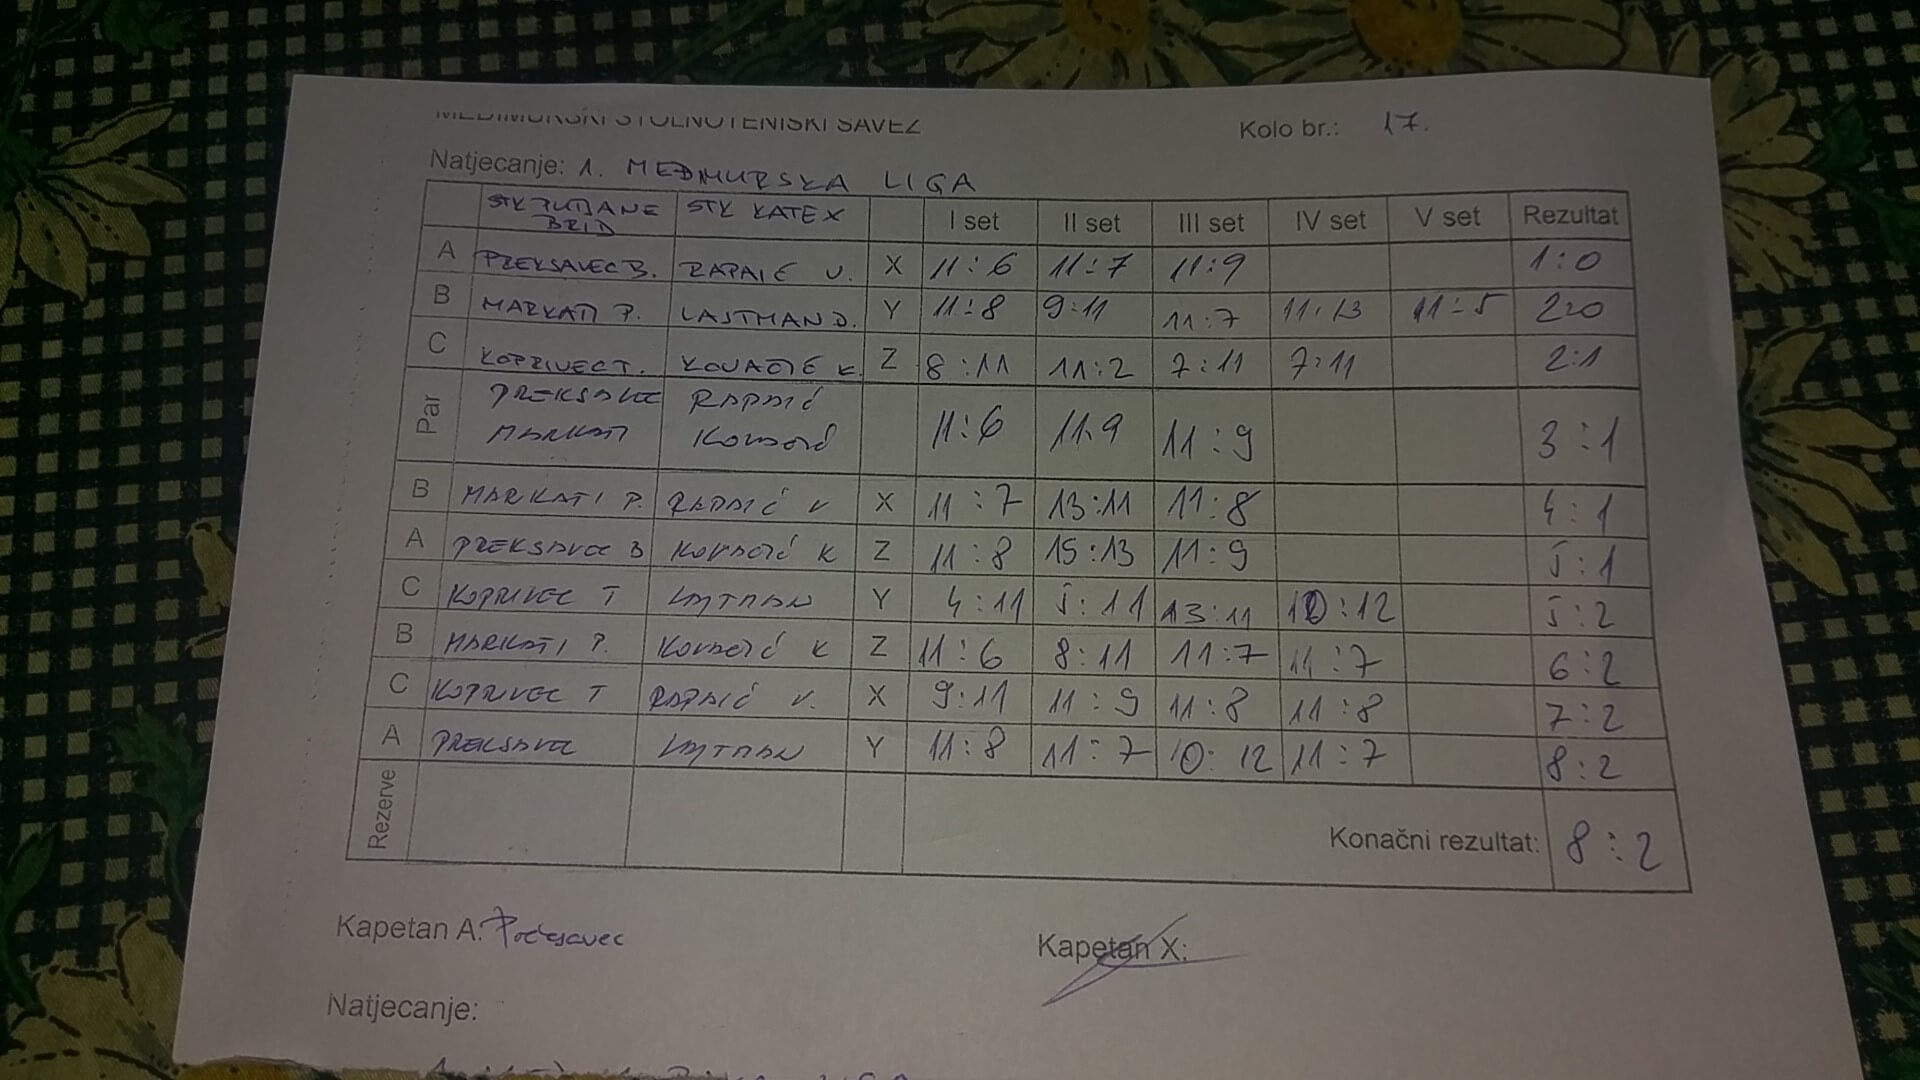 MEĐIMURSKI STOLNOTENISKI SAVEZ Kolo br.: 17.
Natjecanje: 1. MEĐMURSKA LIGA
STK PUTJANE BRID STK KATEX I set II set III set IV set V set Rezultat
A PREKSAVEC B. RAPAIĆ V. X 11:6 11:7 11:9 1:0
B MARKATI P. LAJTMAN D. Y 11:8 9:11 11:7 11:13 11-5 2:0
C KOPRIVEC T. KOVAČIĆ K. Z 8:11 11:2 7:11 7:11 2:1
Par PREKSAVEC RAPAIĆ
MARKATI Kovačić 11:6 11:9 11:9 3:1
B MARKATI P. RAPAIĆ V X 11:7 13:11 11:8 4:1
A PREKSAVEC B KOVAČIĆ K Z 11:8 15:13 11:9 5:1
C KOPRIVEC T LAJTMAN Y 4:11 5:11 13:11 10:12 5:2
B MARKATI P. KOVAČIĆ K Z 11:6 8:11 11:7 11:7 6:2
C KOPRIVEC T RAPAIĆ V. X 9:11 11:9 11:8 11:8 7:2
A PREKSAVEC LAJTMAN Y 11:8 11:7 10:12 11:7 8:2
Rezerve Konačni rezultat: 8:2
Kapetan A: Preksavec Kapetan X:
Natjecanje: